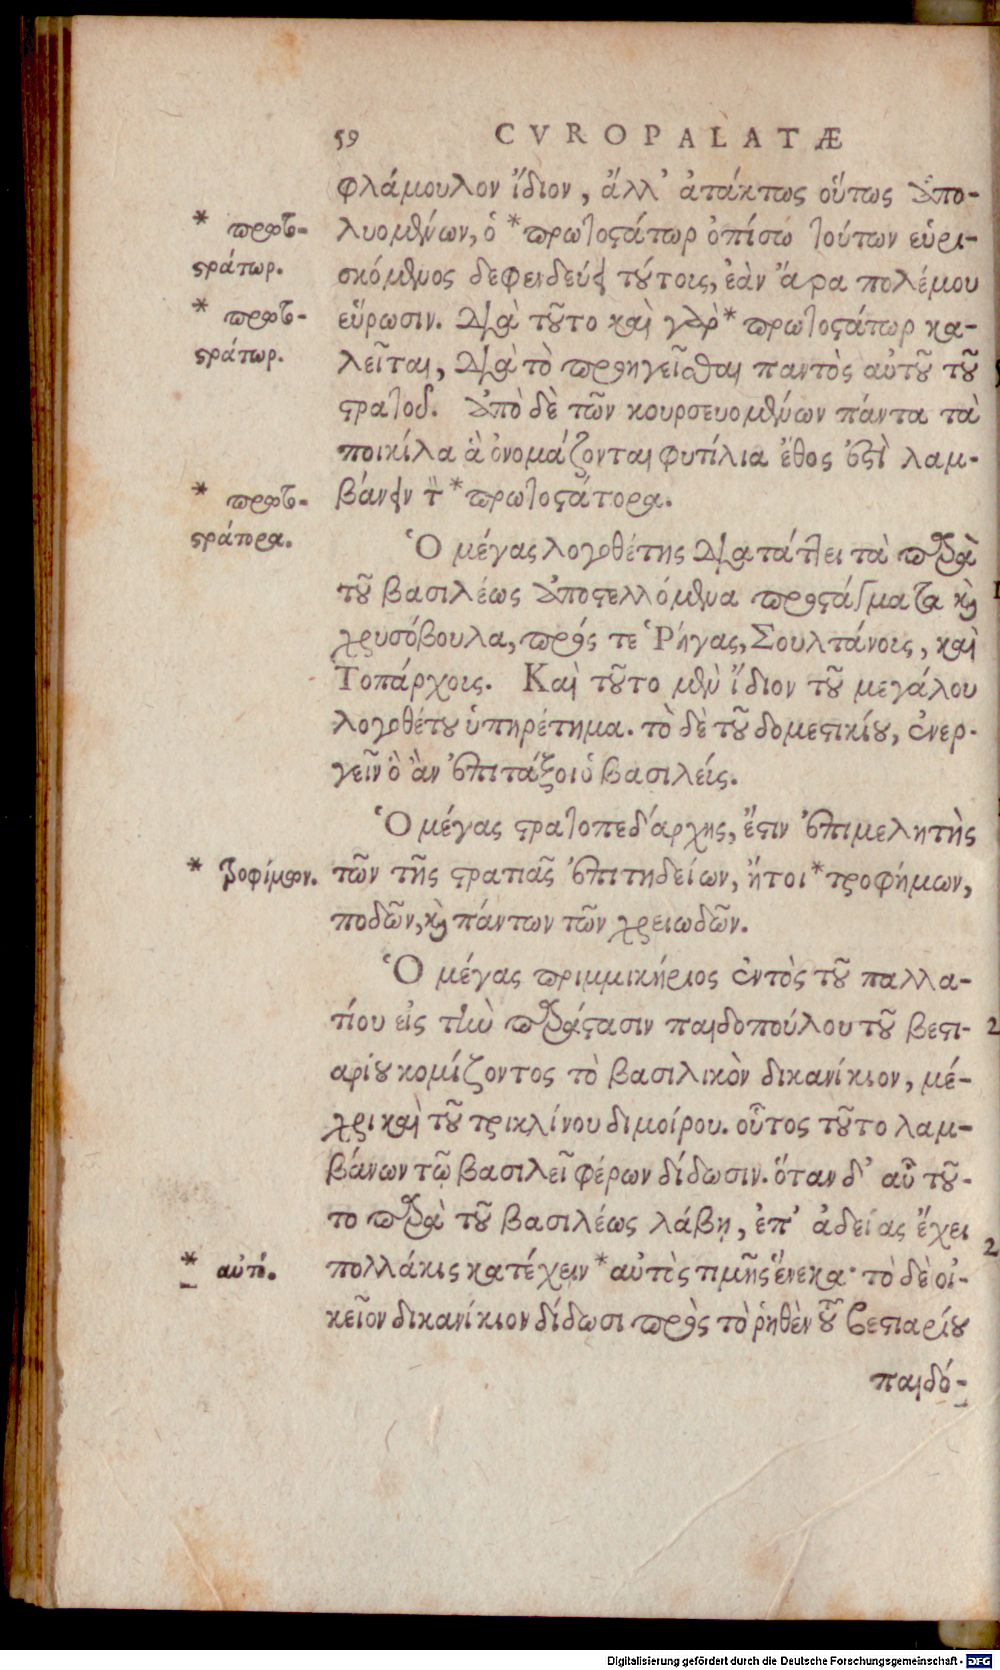 59 CVROPALATÆ
φλάμουλον ἴδιον, ἀλλ’ ἀτάκτως οὕτως ἀπο-
λυομένων, ὁ *πρωτοστάτωρ ὀπίσω τούτων εὑρι-
* πρωτο-
στράτωρ.
σκόμενος δεφενδεύει τούτοις, ἐὰν ἄρα πολέμου
εὕρωσιν. Διὰ τοῦτο καὶ γὰρ *πρωτοστάτωρ κα-
* πρωτο-
στράτωρ.
λεῖται, Διὰ τὸ προηγεῖσθαι παντὸς αὐτοῦ τοῦ
στρατοῦ. Ἀπὸ δὲ τῶν κουρσευομένων πάντα τὰ
ποικίλα ἃ ὀνομάζονται φυτίλια ἔθος ἐστὶ λαμ-
βάνειν τὸν *πρωτοστάτορα.
* πρωτο-
στράτορα.
Ὁ μέγας λογοθέτης Διατάττει τὰ παρὰ
τοῦ βασιλέως ἀποστελλόμενα προστάγματα καὶ
χρυσόβουλα, πρός τε Ῥήγας, Σουλτάνοις, καὶ
Τοπάρχοις. Καὶ τοῦτο μὲν ἴδιον τοῦ μεγάλου
λογοθέτου ὑπηρέτημα. τὸ δὲ τοῦ δομεστικίου, ἐνερ-
γεῖν ὃ ἂν ἐπιτάξοι ὁ βασιλεύς.
Ὁ μέγας στρατοπεδάρχης, ἔστιν ἐπιμελητὴς
τῶν τῆς στρατιᾶς ἐπιτηδείων, ἤτοι *τροφήμων,
* τροφίμων.
ποδῶν, καὶ πάντων τῶν χρειωδῶν.
Ὁ μέγας πριμμικήριος ἐντὸς τοῦ παλλα-
τίου εἰς τὴν παράστασιν παιδοπούλου τοῦ βεστι-
αρίου κομίζοντος τὸ βασιλικὸν δικανίκιον, μέ-
χρι καὶ τοῦ τρικλίνου διμοίρου. οὗτος τοῦτο λαμ-
βάνων τῷ βασιλεῖ φέρων δίδωσιν. ὅταν δ’ αὖ τοῦ-
το παρὰ τοῦ βασιλέως λάβῃ, ἐπ’ ἀδείας ἔχει
πολλάκις κατέχειν *αὐτὸς τιμῆς ἕνεκα· τὸ δὲ οἰ-
* αὐτό.
κεῖον δικανίκιον δίδωσι πρὸς τὸ ῥηθὲν τοῦ βεστιαρίου
παιδό-
Digitalisierung gefördert durch die Deutsche Forschungsgemeinschaft - DFG